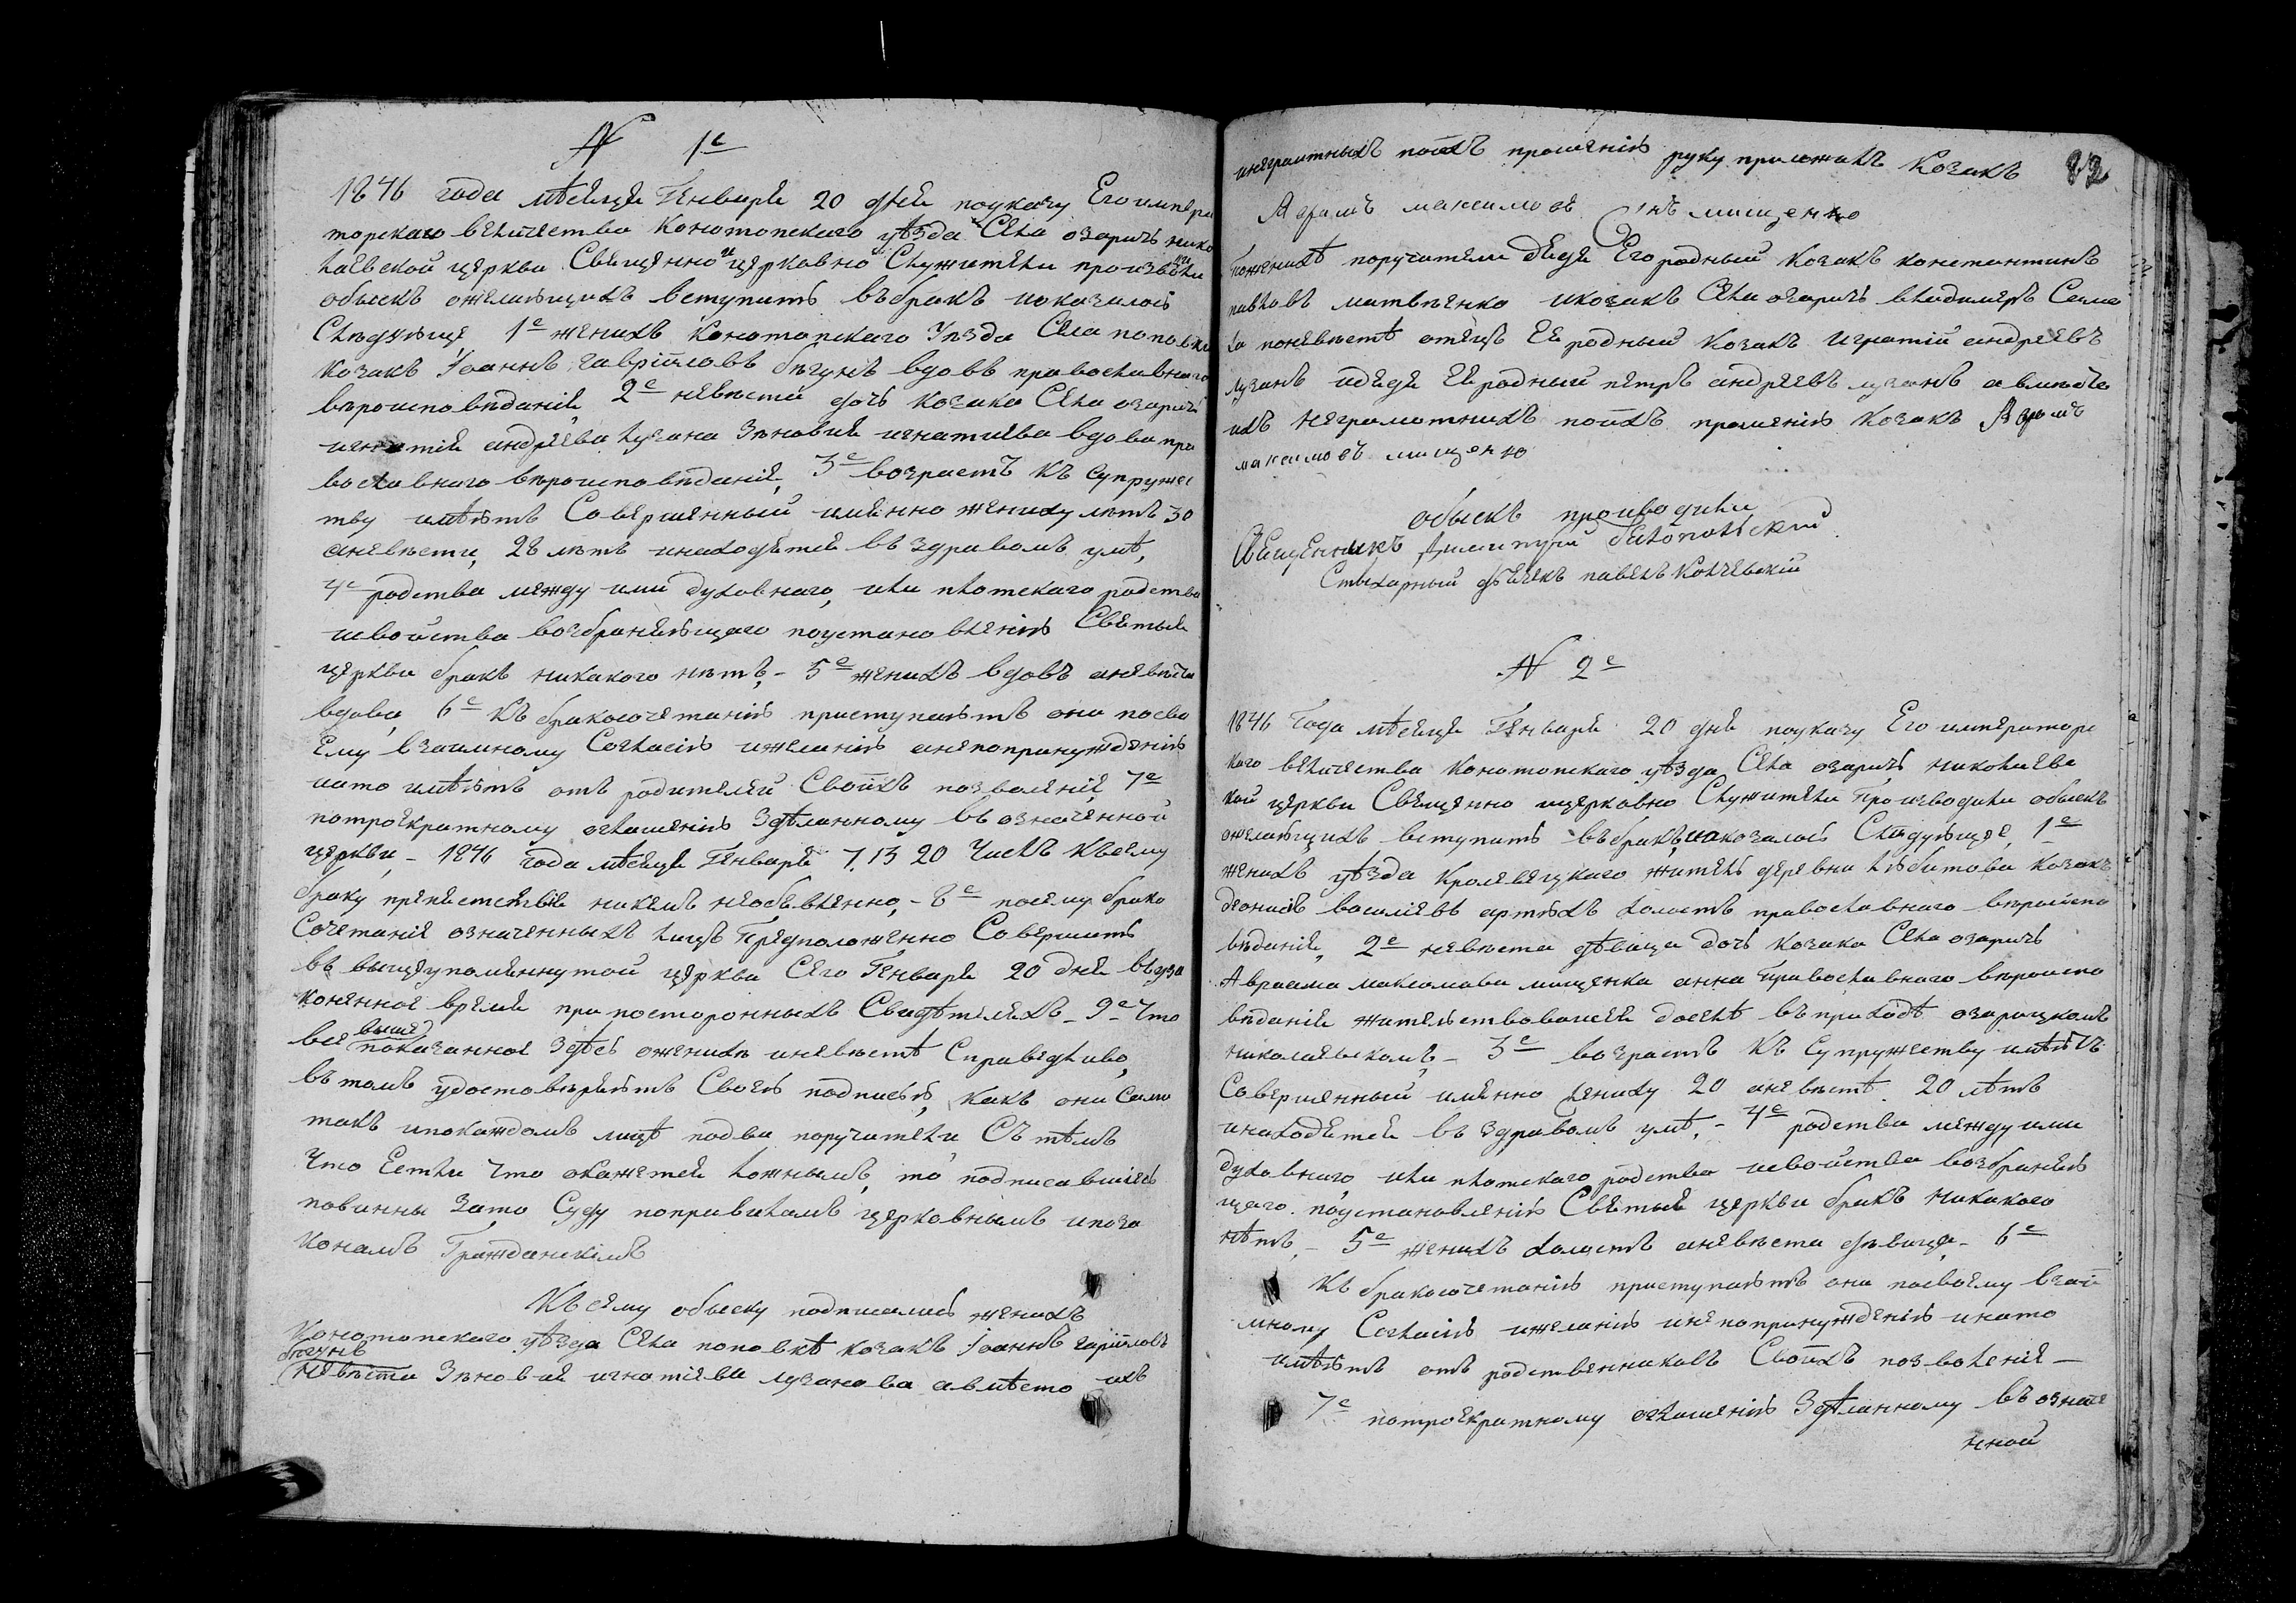 N 1е
1846 года мѣсяця Генваря 20 дня поуказу Его импера
торскаго величества Конотопскаго уѣзда Села озаричъ нико
лаевской церкви Священно и церковно Служители произвели
обыскъ ожелающихъ вступить въбракъ ипоказалось
Слѣдующе 1е женихъ Конотопскаго Уезда Села поповки
козакъ Іоаннъ гавріиловъ бѣгунъ вдовъ православнаго
вѣроисповѣданія, 2е невѣста дочь козака Села озаричъ
игнатія андреева лузана Зѣновия игнатиева вдова пра
вославнаго вѣроисповѣданія, 3е возрастъ къ супружес
тву имѣютъ Совершенный именно жениху лѣтъ 30
аневѣсти, 28 лѣтъ инаходятся въ здравомъ умѣ,
4е родства между ими духовнаго, или плотскаго родства
исвойства возбраняющаго поустановленію Святыя
церкви бракъ никакого нѣтъ,- 5е женихъ вдовъ аневѣста
вдова, 6е Къ бракосочетанію приступаютъ они посво
ему взаимному Согласію ижеланію анепопринужденію
инато имѣютъ отъ родителей Своихъ позволеніе, 7е
потроекратному оглашенію Здѣланному въ означенной
церкви, - 1846 года мѣсяця Генваря 7, 13 20 Числъ Ксему
браку препятствіе никемъ необъявленно, - 8е посему брако
Сочетаніе означенныхъ лицъ Предположенно Совершить
въ вышеупомянутой церкви Сего Генваря 20 дня въуза
коненное время при посторонныхъ Свидѣтеляхъ - 9е Что
все выше показанное Здѣсь оженихѣ иневѣстѣ Справедливо,
въ томъ удостовѣряютъ Своею подписью, какъ они Сами
такъ ипокаждомъ лицѣ подва поручители Съ тѣмъ
Что Естли Что окажется ложнымъ, то подписавшіясь
повинны Зато Суду поправиламъ церковнымъ ипоза
конамъ Гражданскімъ
Къ сему обыску подписались женихъ
Конотопскаго уѣзда Села поповкѣ козакъ Іоаннъ гаріиловъ
бѣгунъ
невѣста Зѣновия игнатіева лузанова авмѣсто ихъ
инеграмтныхъ поихъ прошенію руку приложилъ Козакъ 82
Аврамъ максимовъ Снъ мищенко
поженихѣ поручители дядя Его родный козакъ константинъ
павловъ матвѣенко икозакъ Села озаричъ владимеръ Семе
ка поневѣстѣ отецъ Ея родный Козакъ Игнатій андреевъ
лузанъ идядя Ея родный петръ андреевъ лузанъ авмѣсто
ихъ неграмотнихъ поихъ прошенію Козакъ Аврамъ
максимовъ мищенко
обыскъ производили
Священникъ Димитрій білопольский
Стихарный дьячекъ павелъ Колчевскій
N 2е
1846 Года мѣсяця Генваря 20 дня поуказу Его императорс
каго величества конотопскаго уѣзда Села озаричъ, николаевс
кой церкви Священно ицерковно Служители Производили обыскъ
ожелающихъ вступить въбракъ, ипоказалось Слѣдующее, 1е
женихъ уѣзда Кролевецкаго житель деревни любитова козакъ
деонисъ василіевъ артюхъ холостъ православнаго вѣроиспо
вѣданія, 2е невѣста дѣвица дочь козака Села озаричъ
Авраама максимова мищенка анна Православнаго вѣроиспо
вѣданія жительствовавшая доселѣ въ приходѣ озарицкомъ
николаевскомъ, - 3е возрастъ къ супружеству имѣютъ
Совершенный именно жениху 20 аневѣстѣ 20 лѣтъ
инаходятся въ здравомъ умѣ, - 4е родства между ими
духовнаго, или плотскаго родства исвойства возбраняю
щаго поустановленію Святыя церкви бракъ никакого
нѣтъ, - 5е женихъ холостъ аневѣста дѣвица, - 6е
къ бракосочетанію приступаютъ они посвоему взаи
мному Согласію ижеланію инепопринужденію инато
имѣютъ отъ родственниковъ Своихъ позволеніе -
7е потроекратному оглашенію Здѣланному въ означе
нной